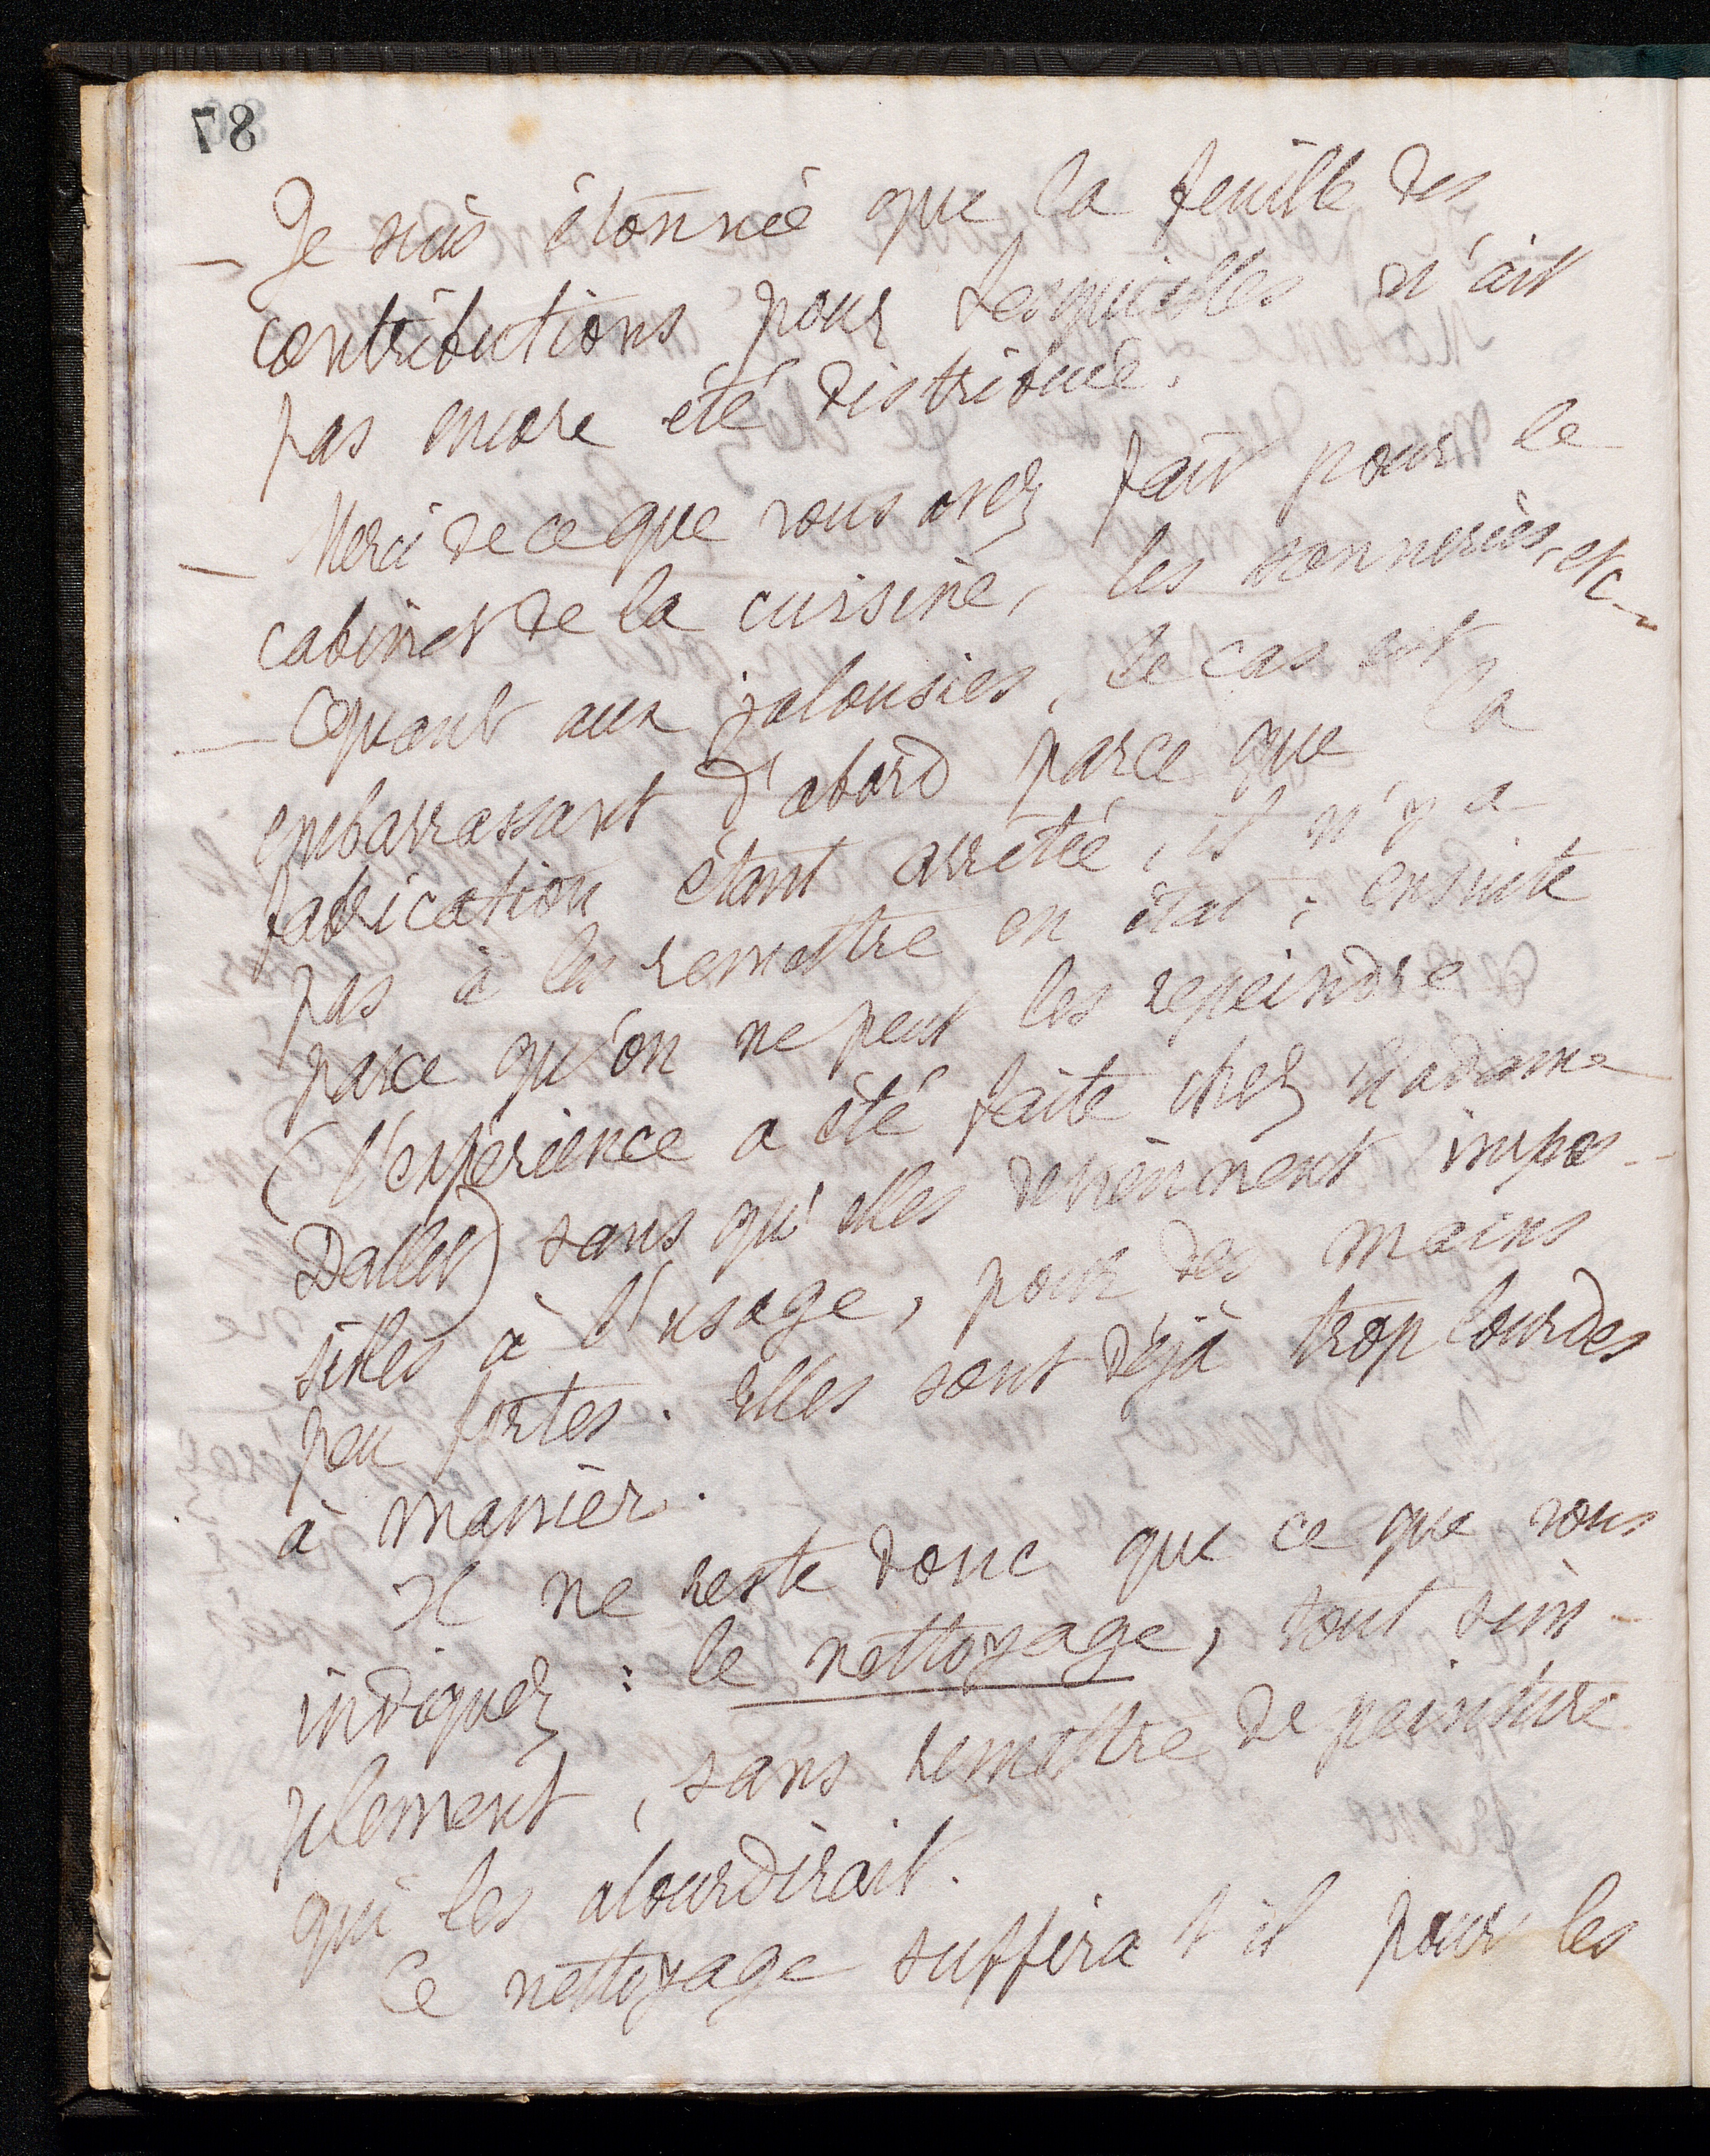 87
— Je suis étonnée que la feuille des
contributions pour Lesquielles n'ait
pas encore été distribuée.
— Merci de ce que vous avez fait pour le
cabinet de la cuisine, les sonneries, etc —
— Quant aux jalousies, le cas est
embarrassant d'abord parce que la
fabrication étant arrêtée, il n'y a
pas à les remettre en état ; ensuite
parce qu'on ne peut les repeindre
(l'expérience a été faite chez Madame
Dallet) sans qu'elles deviennent impos-
sibles à l'usage, pour des mains
peu fortes. Elles sont déjà trop lourdes
à manier.
Il ne reste donc que ce que vous
indiquez : le nettoyage, tout sim-
plement, sans remettre de peinture
qui les alourdirait.
Ce nettoyage suffira t il pour les